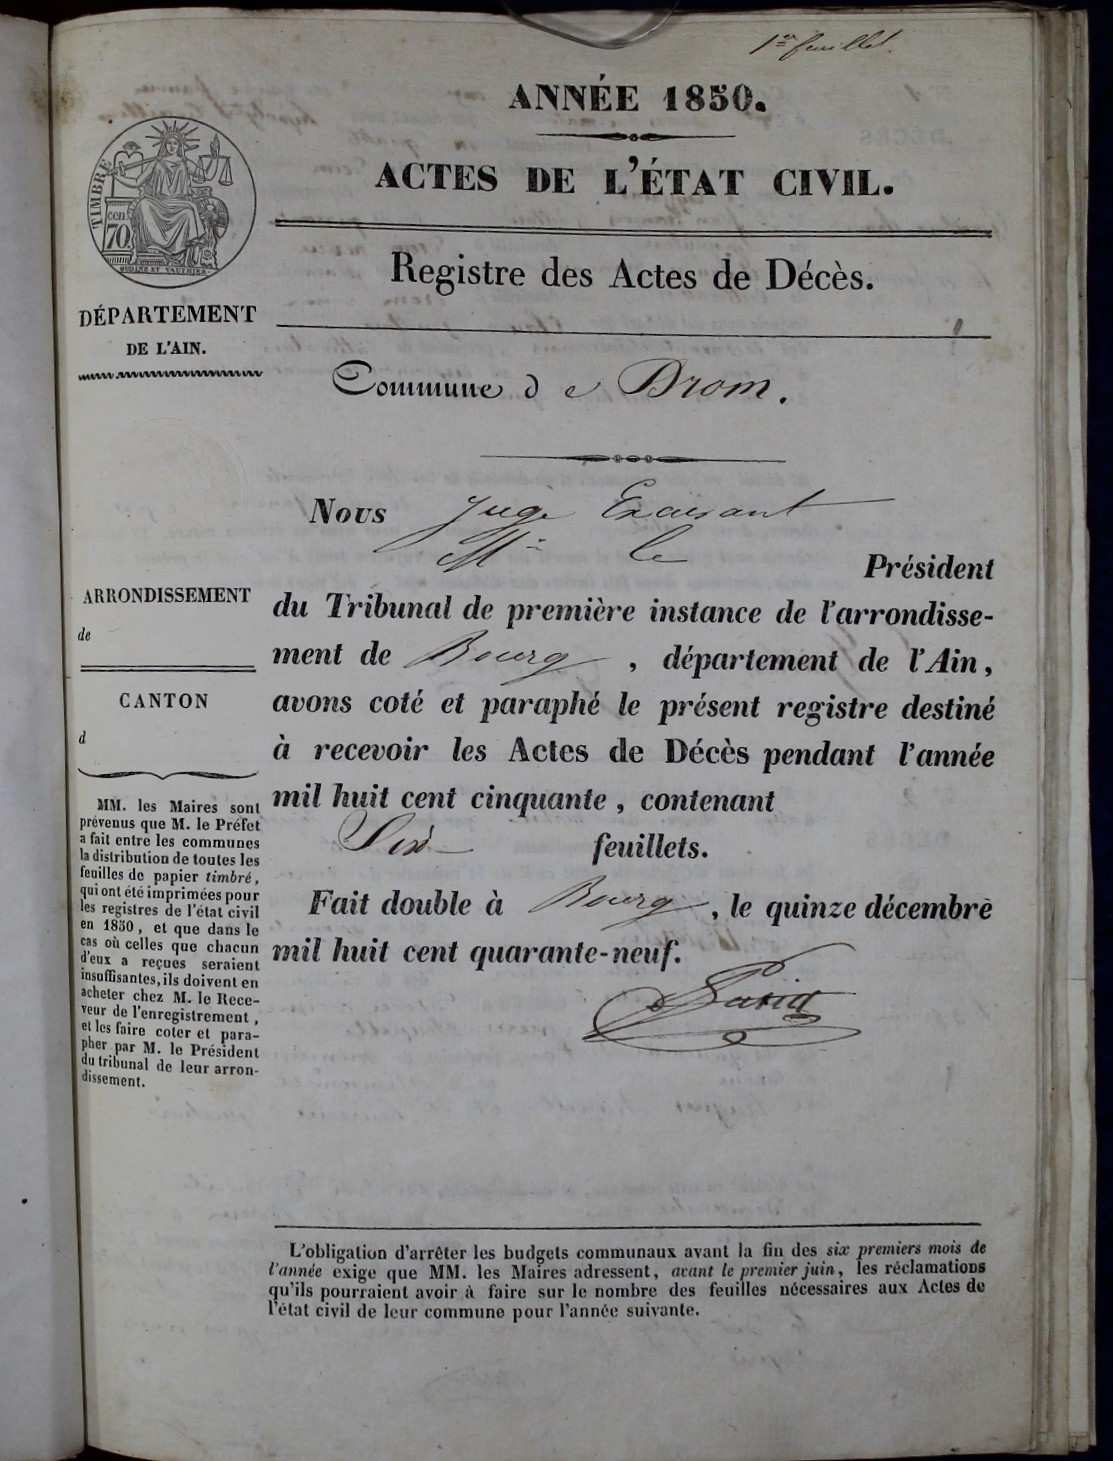 1er feuillet.
ANNÉE 1850.
ACTES DE L'ÉTAT CIVIL.
TIMBRE
70
cen
Registre des Actes de Décès.
DÉPARTEMENT
DE L'AIN.
Commune de Drom.
Nous Juge Exerçant
Mr le
Président
du Tribunal de première instance de l'arrondisse-
ment de Bourg, département de l'Ain,
avons coté et paraphé le présent registre destiné
à recevoir les Actes de Décès pendant l'année
mil huit cent cinquante, contenant
Six feuillets.
Fait double à Bourg, le quinze décembre
mil huit cent quarante-neuf.
ARRONDISSEMENT
de
CANTON
d
MM. les Maires sont
prévenus que M. le Préfet
a fait entre les communes
la distribution de toutes les
feuilles de papier timbré,
qui ont été imprimées pour
les registres de l'état civil
en 1850, et que dans le
cas où celles que chacun
d'eux a reçues seraient
insuffisantes, ils doivent en
acheter chez M. le Rece-
veur de l'enregistrement,
et les faire coter et para-
pher par M. le Président
du tribunal de leur arron-
dissement.
L'obligation d'arrêter les budgets communaux avant la fin des six premiers mois de
l'année exige que MM. les Maires adressent, avant le premier juin, les réclamations
qu'ils pourraient avoir à faire sur le nombre des feuilles nécessaires aux Actes de
l'état civil de leur commune pour l'année suivante.